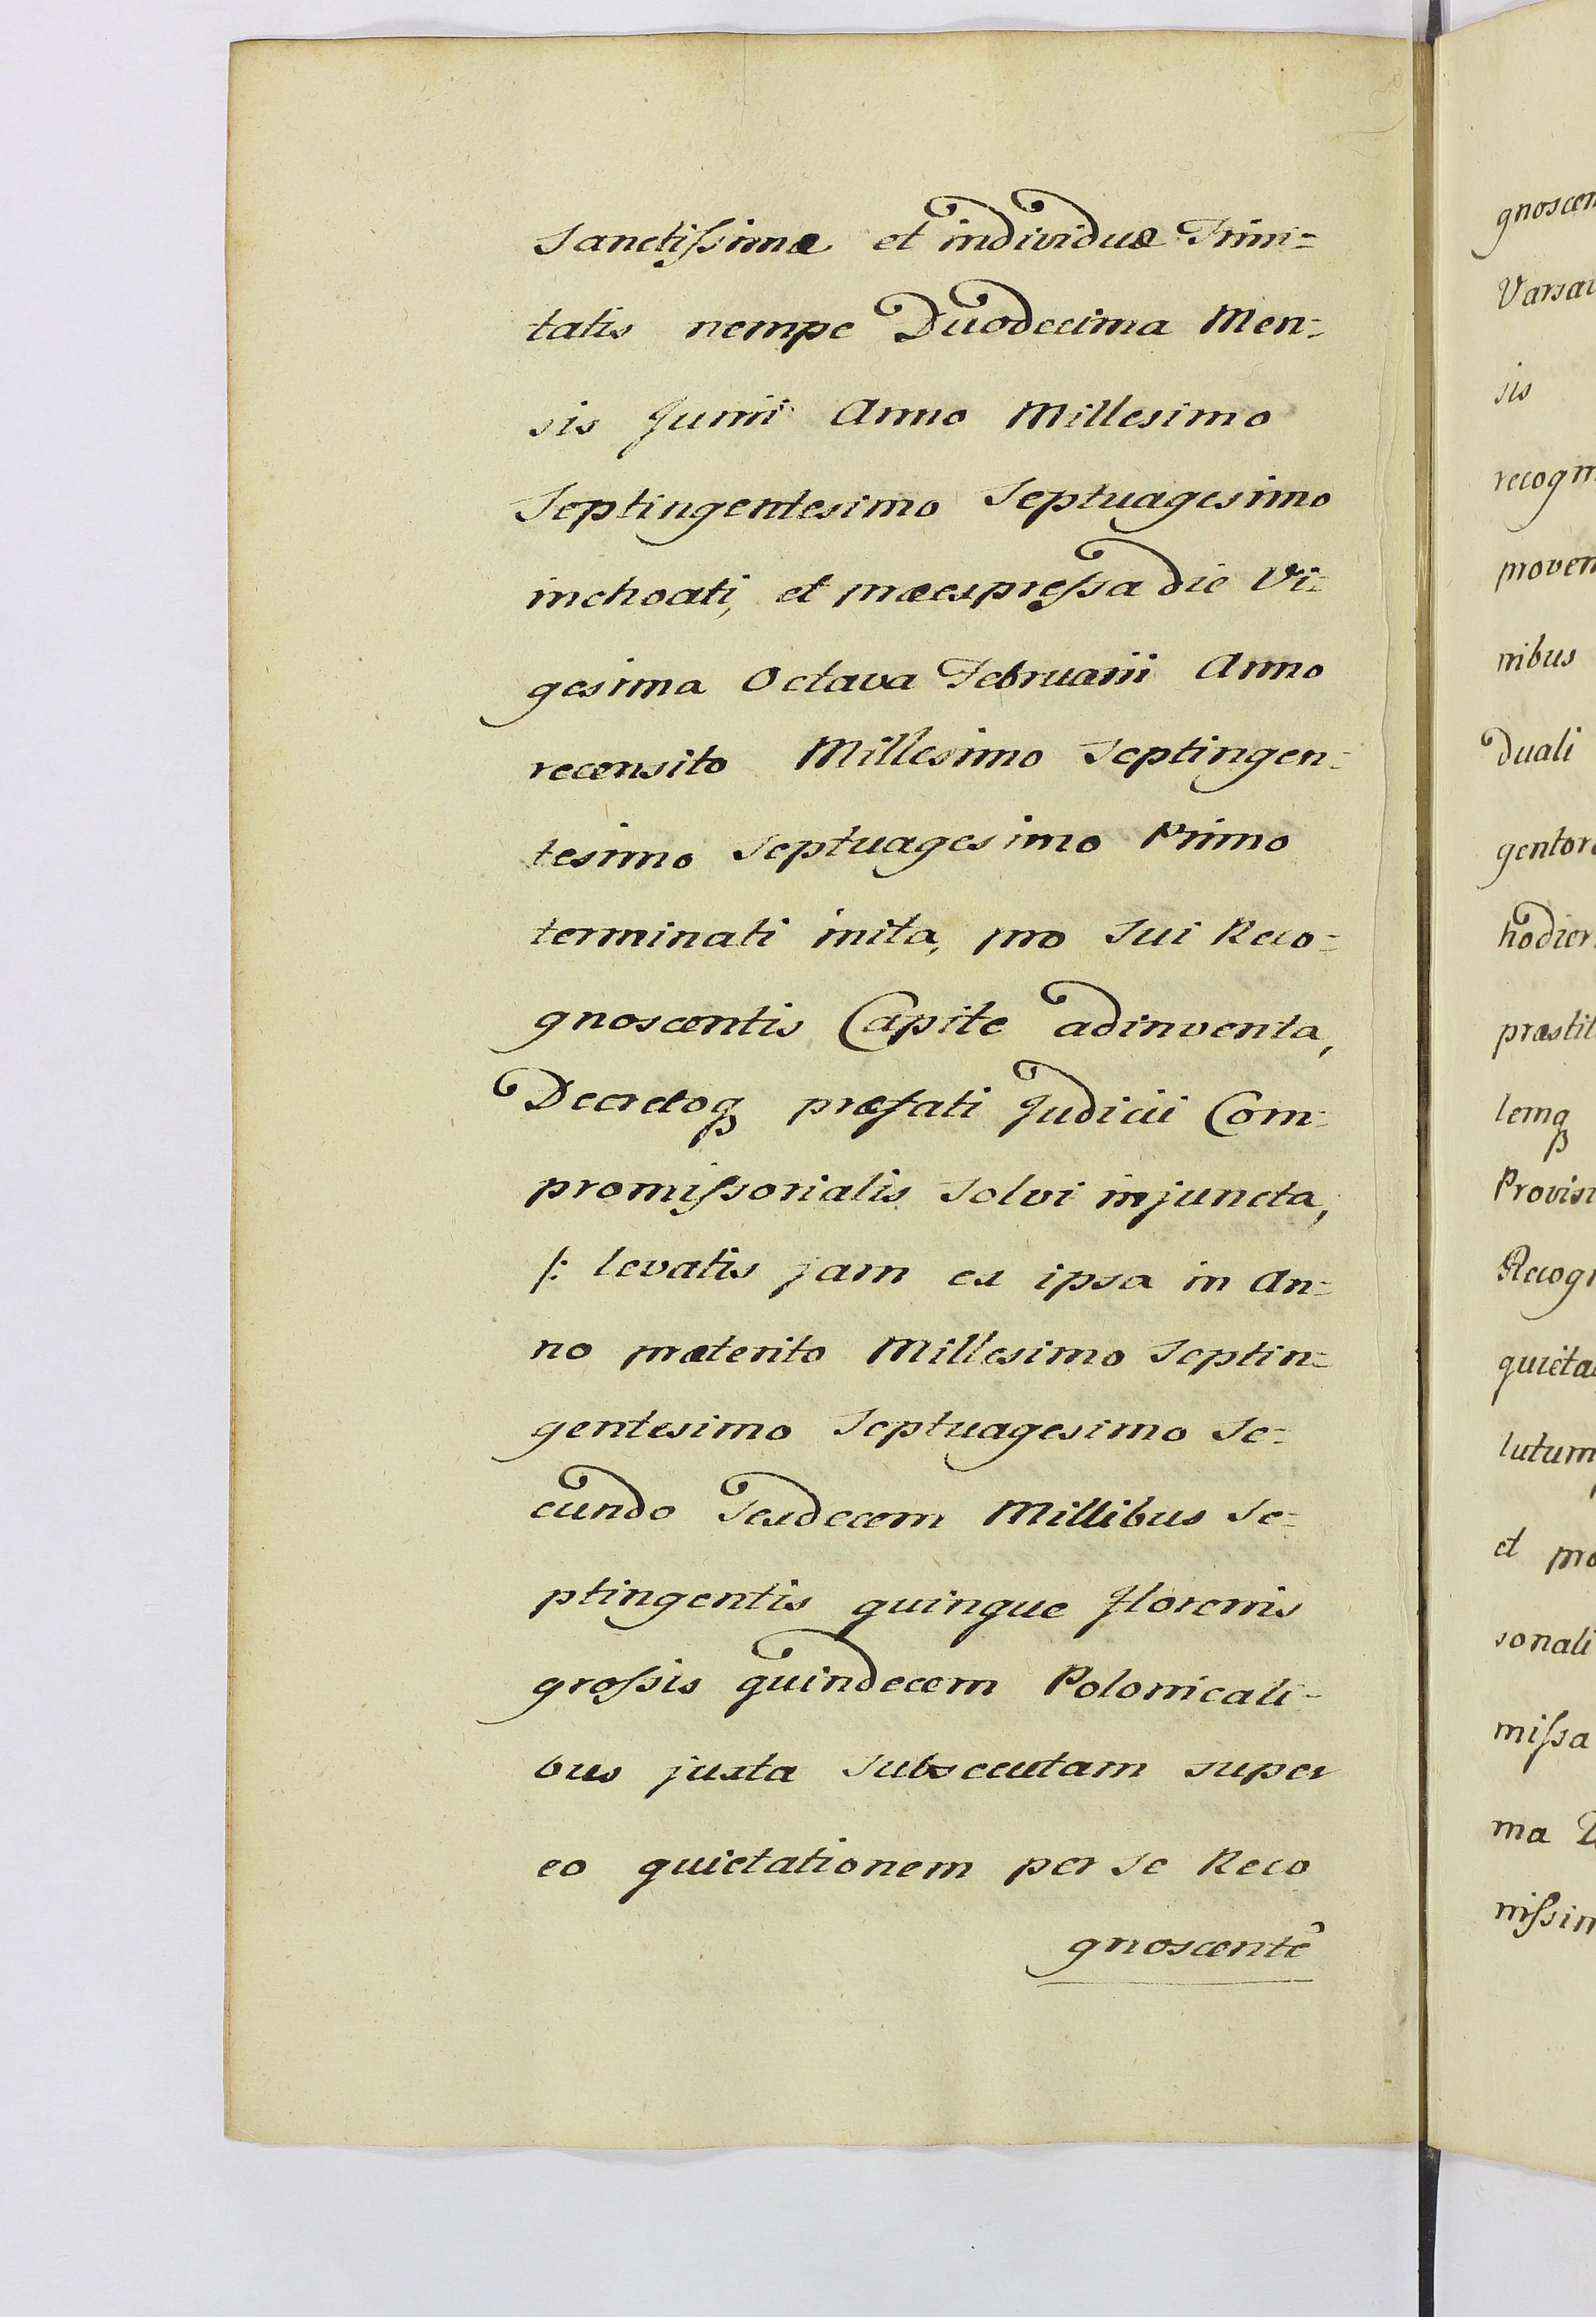 Sanctiſsimæ et individuæ Trini=
tatis nempe Duodecima Men=
sis Junii Anno Millesimo
Septingentesimo Septuagesimo
inchoati, et præexpreſsa die Vi=
gesima Octava Februarii Anno
recensito Millesimo Septingen=
tesimo Septuagesimo Primo
terminati inita, pro sui Reco=
gnoscentis Capite adinventa,
Decretoqꝫ præfati Judicii Com=
promiſsorialis solvi injuncta,
/: levatis jam ex ipsa in An=
no præterito Millesimo Septin=
gentesimo Septuagesimo Se=
cundo Sexdecem Millibus Se=
ptingentis quinque florenis
groſsis quindecem Polonicali=
bus juxta subsecutam super
eo quietationem per se Reco
gnoscentē
gnoscen
Varsav
sis
recogn
proven
nibus
duali
gentor
hodier
præstit
lemqꝫ
Provisi
Recogn
quieta
lutum
et pro
sonali
miſsa
ma
niſsim